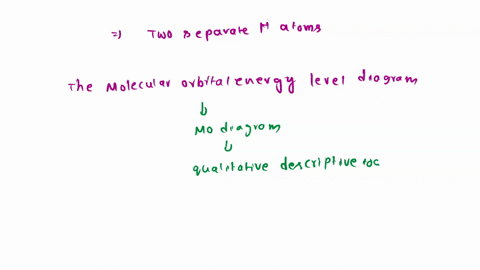 => Two separate H atoms
The Molecular orbital energy level diagram
MO diagram
qualitative descriptive toc